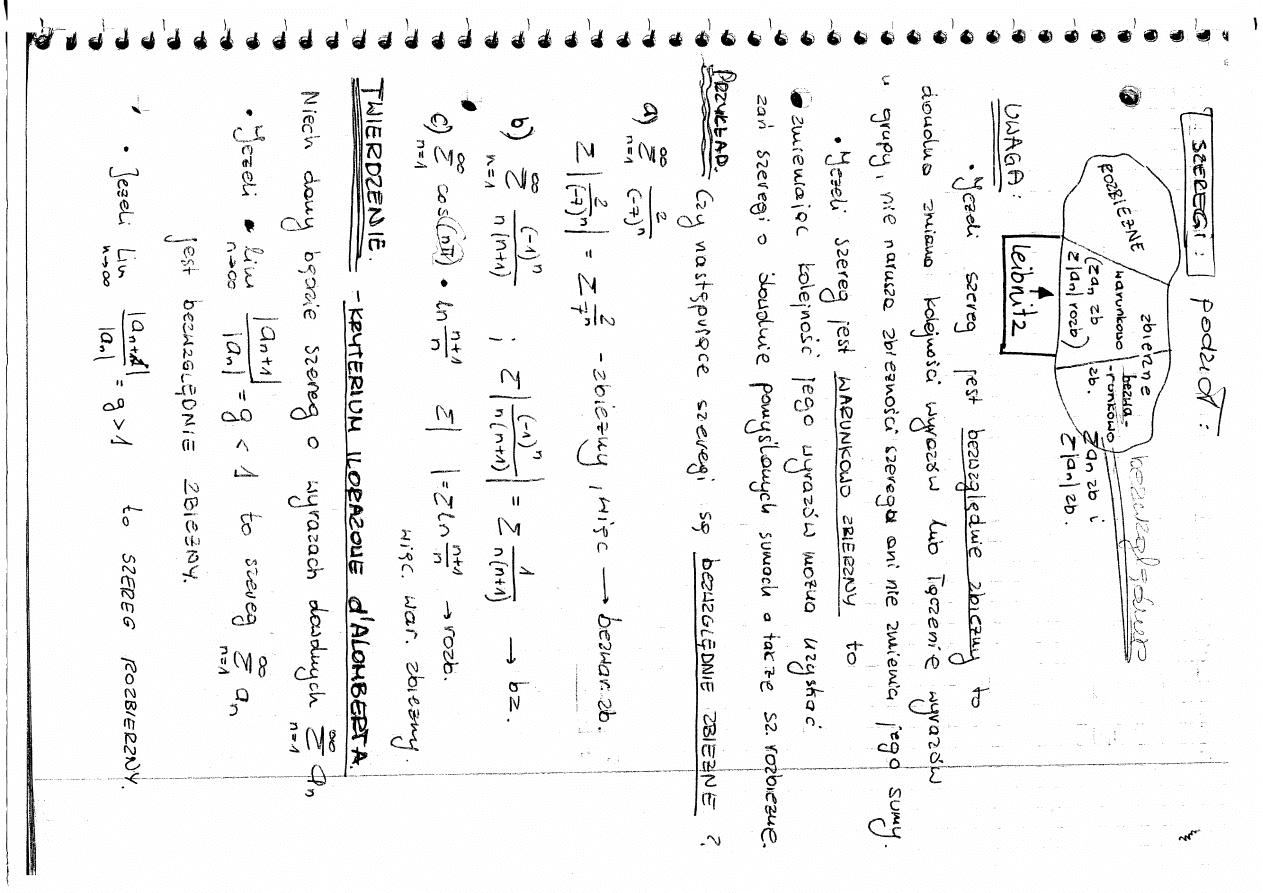 SZEREGI: podział:
ROZBIEŻNE
zbieżne
warunkowo
(Σan zb
Σ|an| rozb)
bezwa-
-runkowo
zb.
bezwzględnie
Σan zb i
Σ|an| zb.
Leibnitz
UWAGA:
• Jeżeli szereg jest bezwzględnie zbieżny to
dowolna zmiana kolejności wyrazów lub łączenie wyrazów
w grupy, nie narusza zbieżności szeregu ani nie zmienia jego sumy.
• Jeżeli szereg jest WARUNKOWO ZBIEŻNY to
zmieniając kolejność jego wyrazów można uzyskać
zań szeregi o dowolnie pomyślanych sumach a także sz. rozbieżne.
PRZYKŁAD. Czy następujące szeregi są BEZWZGLĘDNIE ZBIEŻNE ?
a) ∞Σn=1 2/(-7)^n
Σ|2/(-7)^n| = Σ 2/7^n - zbieżny, więc → bezwar. zb.
b) ∞Σn=1 (-1)^n/n(n+1) ; Σ|(-1)^n/n(n+1)| = Σ 1/n(n+1) → bz.
c) ∞Σn=1 cos(nπ) • ln n+1/n Σ| |= Σ ln n+1/n → rozb.
więc. war. zbieżny.
TWIERDZENIE. - KRYTERIUM ILORAZOWE d'ALOMBERTA.
Niech dany będzie szereg o wyrazach dowolnych ∞Σn=1 an
• Jeżeli lim n→∞ |an+1|/|an| = g < 1 to szereg ∞Σn=1 an
jest BEZWZGLĘDNIE ZBIEŻNY.
• Jeżeli Lim n→∞ |an+1|/|an| = g > 1 to SZEREG ROZBIERZNY.